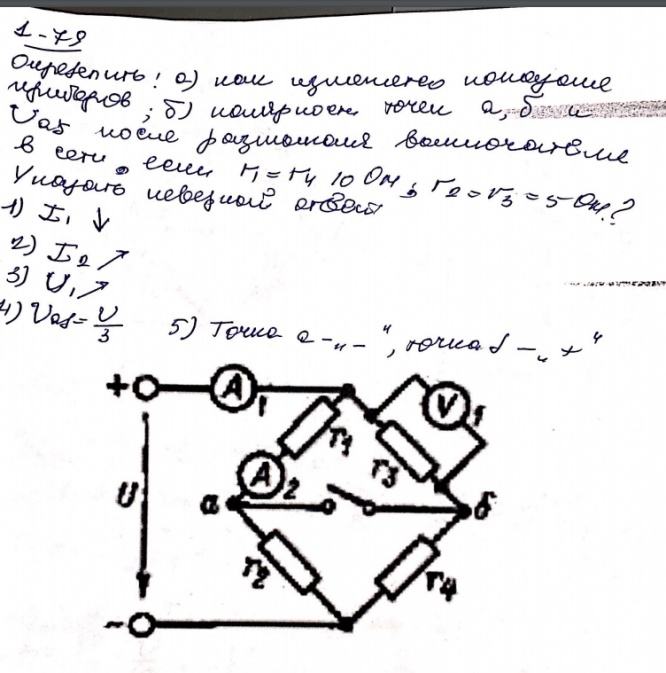 1-79
Определить: а) как изменятся показания
приборов; б) полярность точек а, б и
Uаб после размыкания выключателя
в сети, если r1 = r4 10 Ом, r2 = r3 = 5 Ом?
Указать неверный ответ
1) I1 ↓
2) I2 ↗
3) U1 ↗
4) Uаб = U/3
5) Точка а - „-“, точка б - „+“
+ A 1
V 1
r1
r3
A 2
U
а
б
r2
r4
-